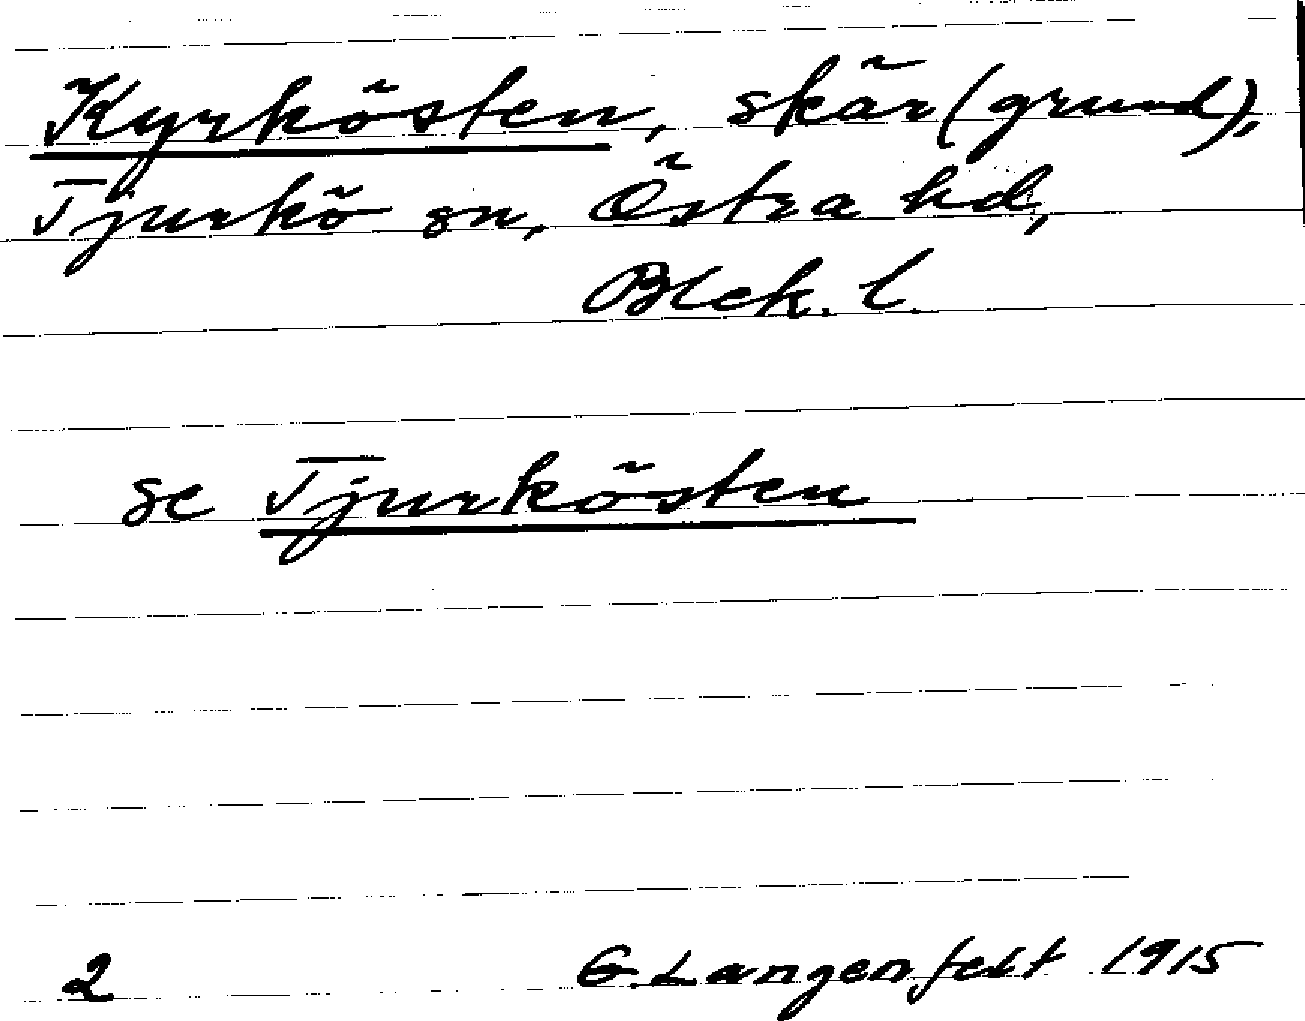 Kyrkösten, skär (grund),
Tjurkö sn, Östra hd,
Blek. l.
se Tjurkösten
2 G. Langenfelt 1915